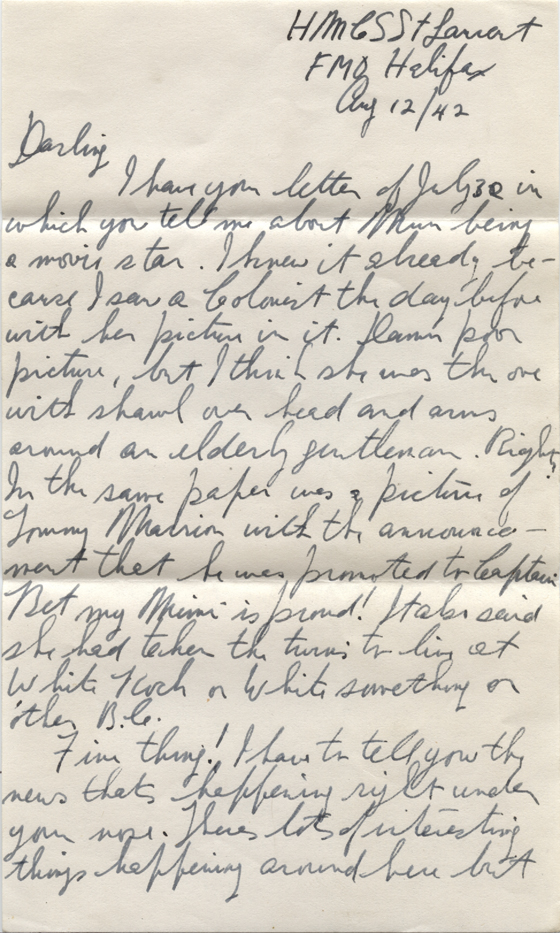 HMCS St Laurent
FMO Halifax
Aug 12/42
Darling
I have your letter of July 30 in
which you tell me about Mum being
a movie star. I knew it already be-
cause I saw a Colonist the day before
with her picture in it. Damn poor
picture, but I think she was the one
with shawl over head and arms
around an elderly gentleman. Right?
In the same paper was a picture of
Tommy Marrion with the announce-
ment that he was promoted to Captain
Bet my Mimi is proud! It also said
she had taken the twins to live at
White Rock or White something or
other B.C.
Fine thing! I have to tell you the
news thats happening right under
your nose. Theres lots of interesting
things happening around here but